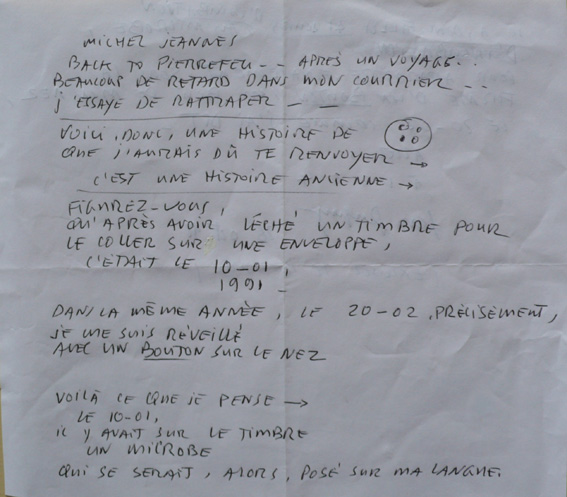 MICHEL JEANNES
BACK TO PIERREFEU -- APRÈS UN VOYAGE..
BEAUCOUP DE RETARD DANS MON COURRIER --
J'ESSAYE DE RATTRAPER — —
VOICI, DONC, UNE HISTOIRE DE
QUE J'AURAIS DÛ TE RENVOYER →
C'EST UNE HISTOIRE ANCIENNE →
FIGUREZ-VOUS,
QU'APRÈS AVOIR LÉCHÉ UN TIMBRE POUR
LE COLLER SUR UNE ENVELOPPE,
C'ÉTAIT LE 10-01,
1991 _
DANS LA MÊME ANNÉE, LE 20-02, PRÉCISÉMENT,
JE ME SUIS RÉVEILLÉ
AVEC UN BOUTON SUR LE NEZ
VOILÀ CE QUE JE PENSE →
LE 10-01,
IL Y AVAIT SUR LE TIMBRE
UN MICROBE
QUI SE SERAIT, ALORS, POSÉ SUR MA LANGUE.